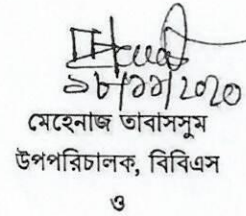 ১৮/১১/2020
মেহেনাজ তাবাসসুম
উপপরিচালক, বিবিএস
ও